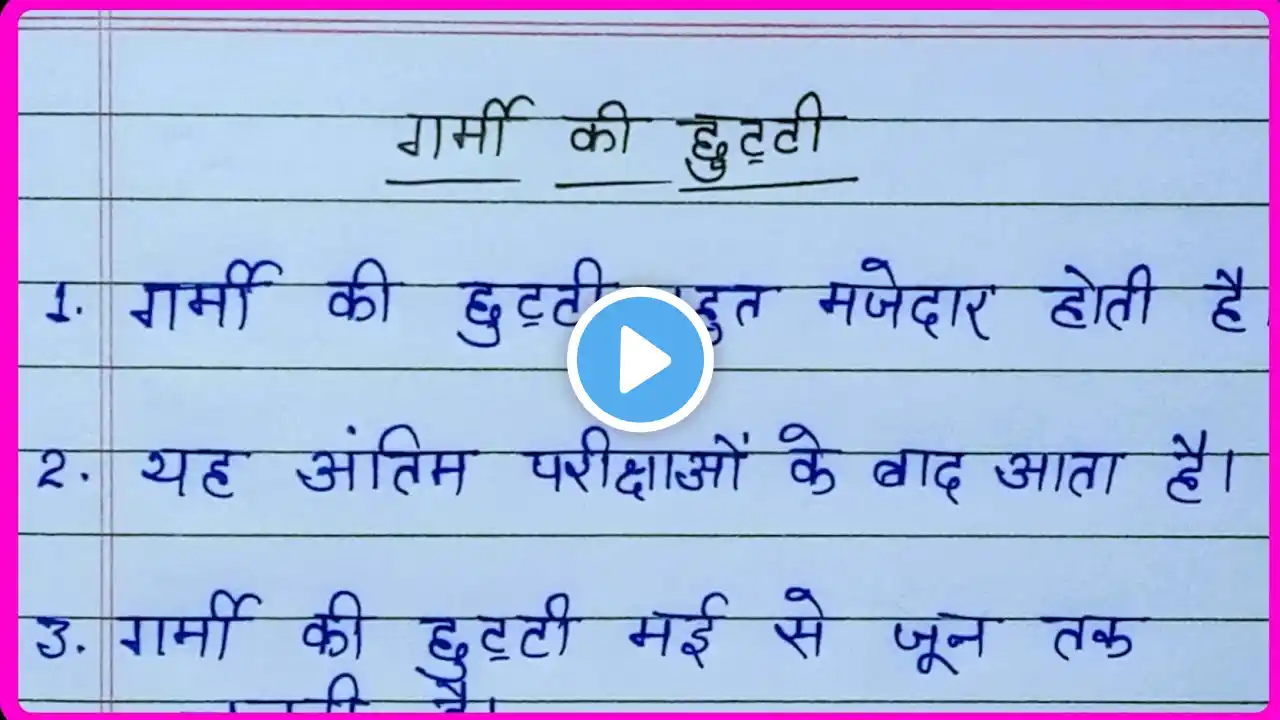 गर्मी की छुट्टी
1. गर्मी की छुट्टी हुत मजेदार होती है
2. यह अंतिम परीक्षाओं के बाद आता है।
3. गर्मी की छुट्टी मई से जून तक
है।